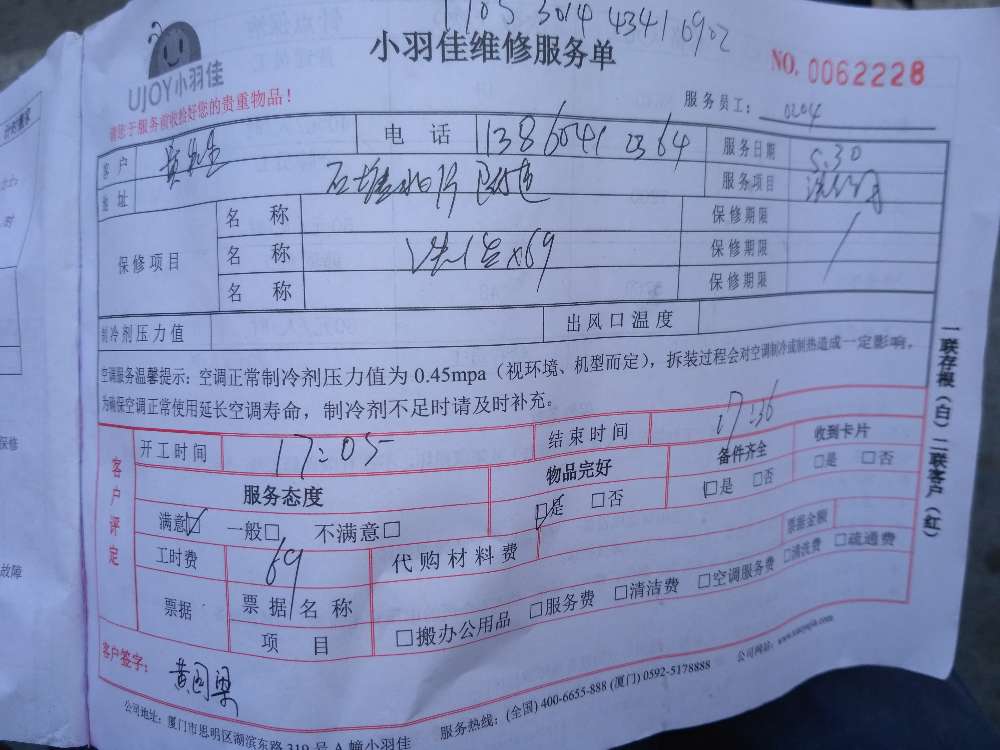 1705 3014 4341 6902
小羽佳维修服务单
NO. 0062228
UJOY小羽佳
请您于服务前收拾好您的贵重物品！
服务员工： 0204
客户 电话 13860412364 服务日期 5.30
地址 服务项目
保修项目 名称 保修期限
名称 洗1台x69 保修期限
名称 保修期限
制冷剂压力值 出风口温度
空调服务温馨提示：空调正常制冷剂压力值为 0.45mpa（视环境、机型而定），拆装过程会对空调制冷或制热造成一定影响。
为确保空调正常使用延长空调寿命，制冷剂不足时请及时补充。
客户评定
开工时间 17:05 结束时间 17:36
服务态度 物品完好 备件齐全 收到卡片
满意☑ 一般□ 不满意□ ☑是 □否 □是 □否 □是 □否
工时费 69 代购材料费 票据金额
票据 票据名称 □搬办公用品 □服务费 □清洁费 □空调服务费 □清洗费 □疏通费
项目
客户签字：
公司地址：厦门市思明区湖滨东路 319 号 A 幢小羽佳
服务热线：(全国) 400-6655-888 (厦门) 0592-5178888
公司网站：www.xiaoyujia.com
一联存根（白）二联客户（红）
保修
故障